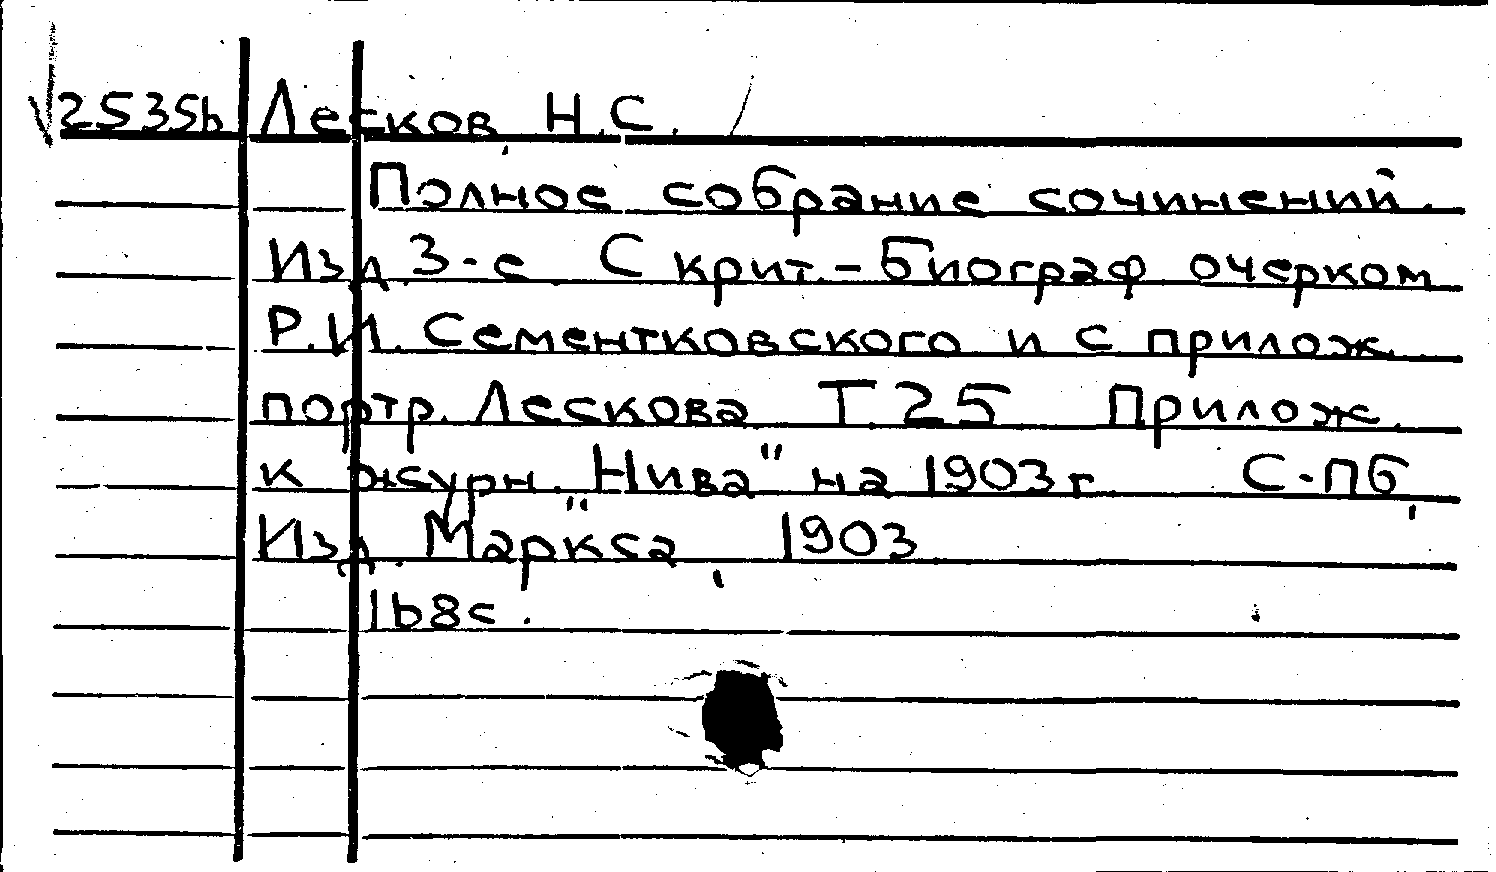 25356 Лесков, Н.С.
Полное собрание сочинений.
Изд. 3-е С крит.-биограф очерком
Р.И. Сементковского и с прилож.
портр. Лескова Т.25 Прилож.
к журн. "Нива" на 1903г С-Пб,
Изд. Маркса, 1903
168с.